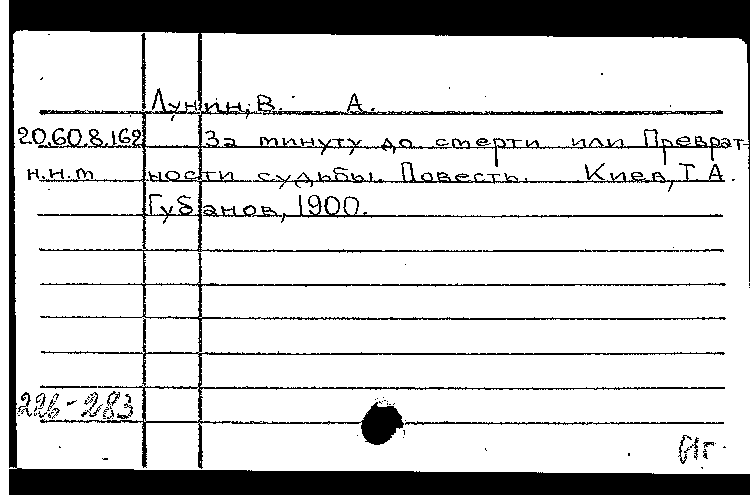 Лунин, В. А.
20.60.8.162 За минуту до смерти или Преврат-
н.н.т ности судьбы. Повесть. Киев, Т. А.
Губанов, 1900.
226-283
61г